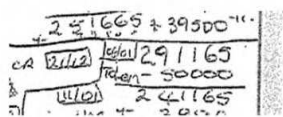 251665 + 39500
CR 21/12 06/01 291165
Token - 50000
11/01 241165